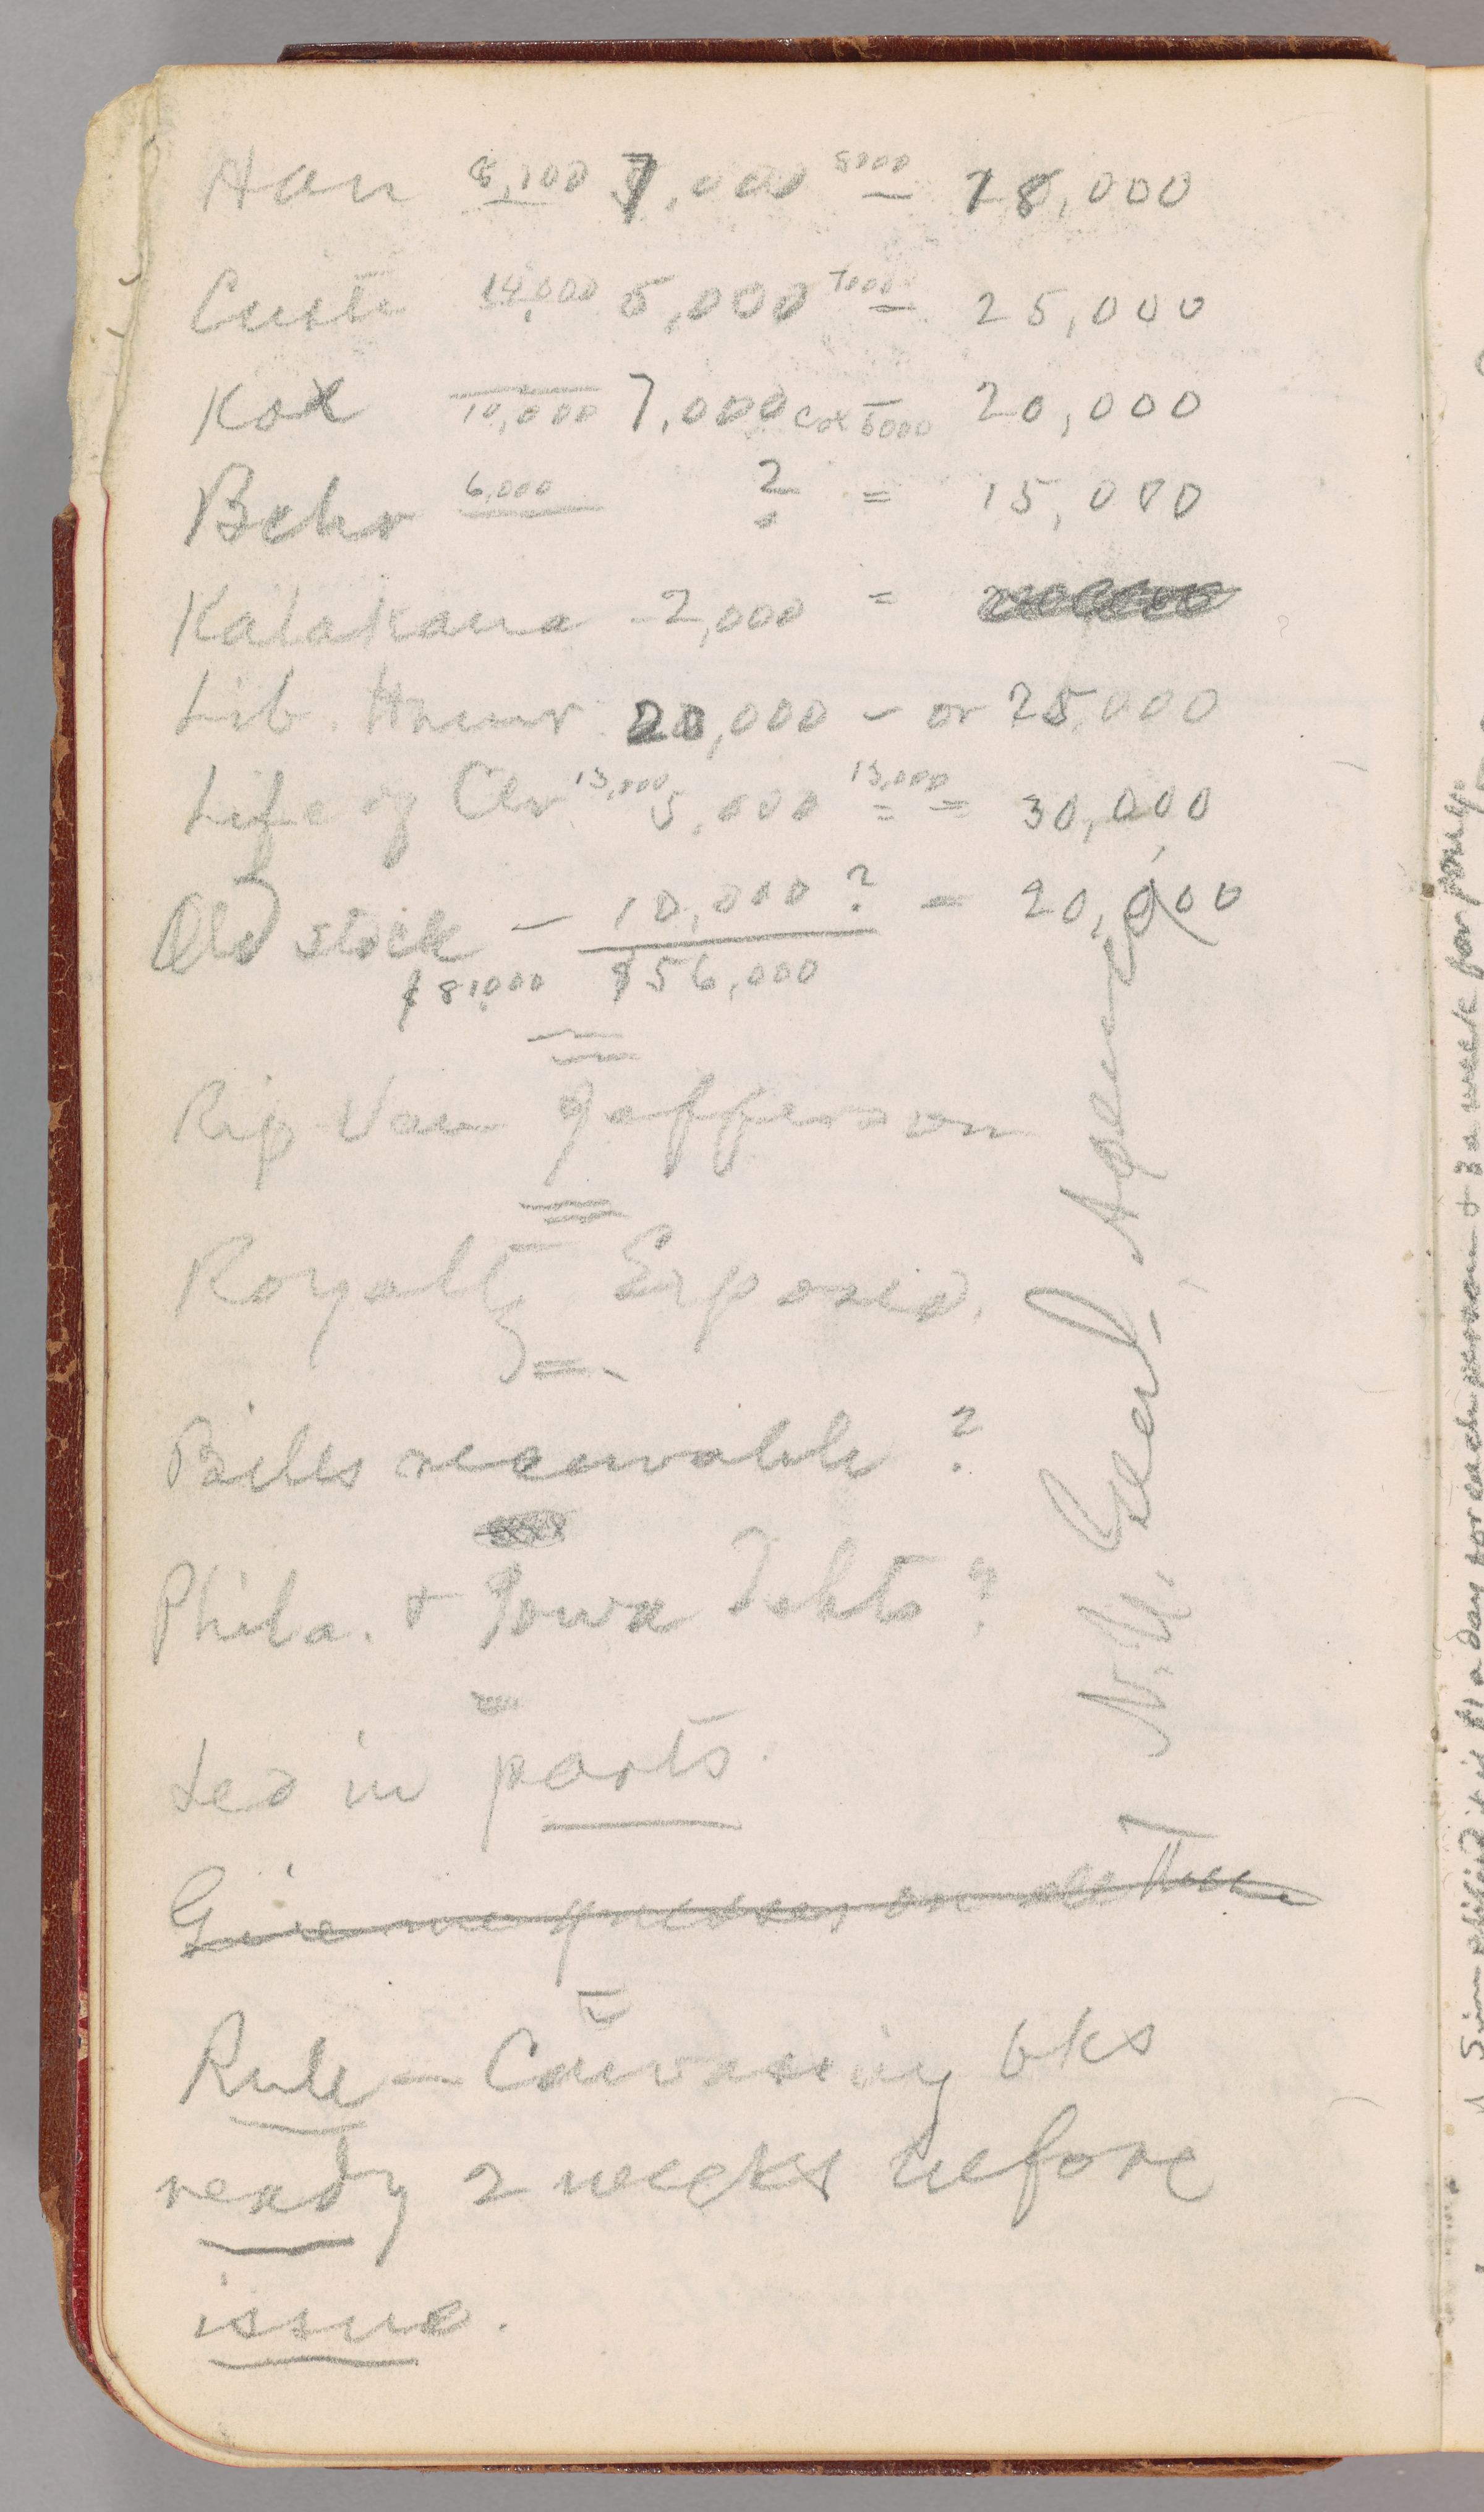 Han 8,100 7,000 8000 — 18,000
Custe 14,000 5,000 7000 = 25,000
Kox 10,000 7,000 Cox 5000 20,000
Behr 6,000 ? = 15,000
Kalakaua - 2,000 =
Lib. Humr 20,000 - or 25,000
Life of Chr 13,000 5,000 13,000 = = 30,000
Old stock — 10,000 ? — 20,000
$81,000 $56,000
Rip Van Jefferson
Royalty Exposed.
Bills receivable ?
Phila. & Iowa Debts ?
Led in parts.
Give me guesses on all these
Rule — Canvassing bks
ready 2 weeks before
issue.
N.Y. Genl. Agency
$1 a day for each person & 3 a week for pony.